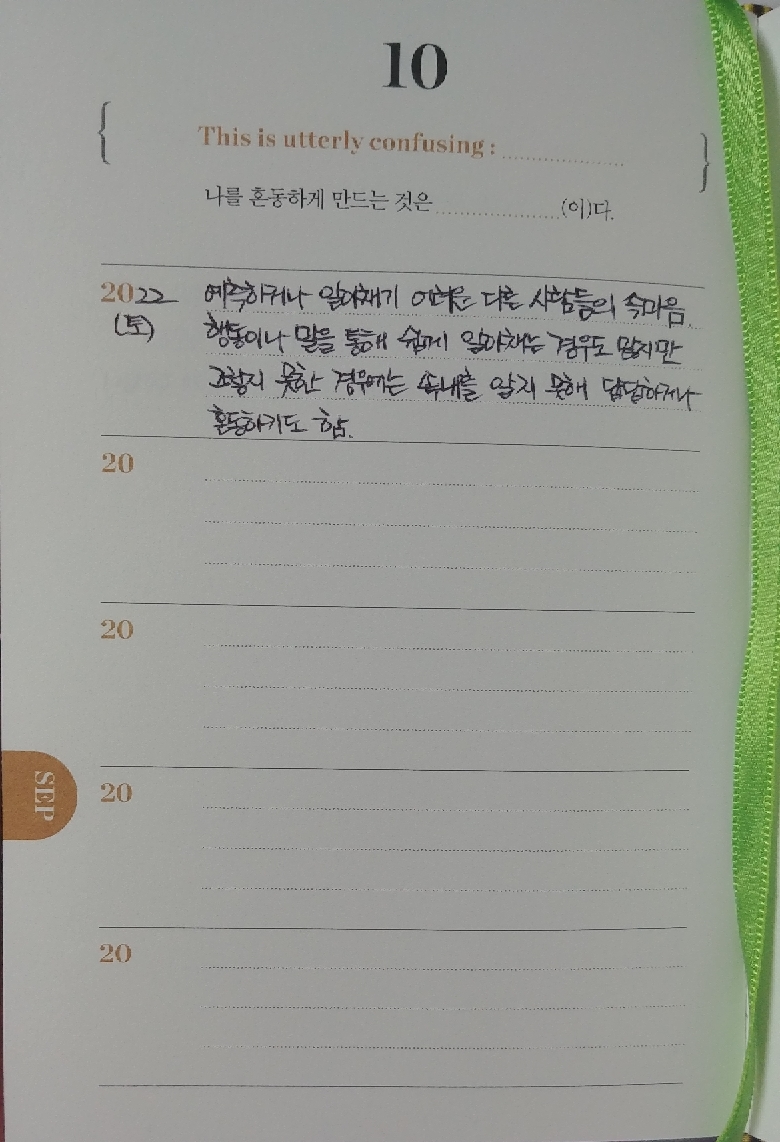 10
This is utterly confusing :
나를 혼동하게 만드는 것은 (이)다.
2022 예측하거나 알아채기 어려운 다른 사람들의 속마음.
(토) 행동이나 말을 통해 쉽게 알아채는 경우도 많지만
그렇지 못한 경우에는 속내를 알지 못해 답답하거나
혼동하기도 함.
20
20
20
SEP
20